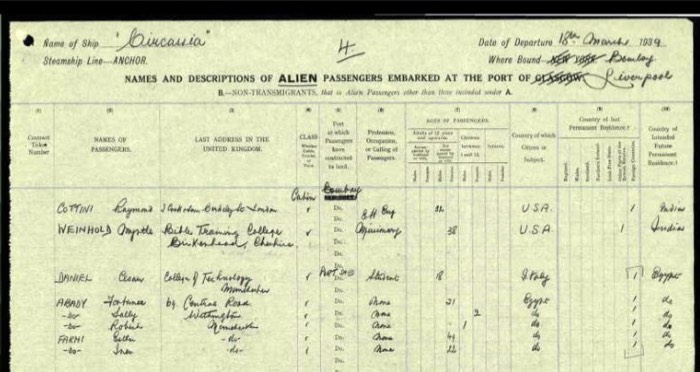 Name of Ship "Circassia"
4.
Date of Departure 18th March 1939
Steamship Line—ANCHOR.
Where Bound—NEW YORK Bombay
NAMES AND DESCRIPTIONS OF ALIEN PASSENGERS EMBARKED AT THE PORT OF GLASGOW Liverpool
B.—NON-TRANSMIGRANTS, that is Alien Passengers other than those included under A.
Contract Ticket Number
NAMES OF PASSENGERS.
LAST ADDRESS IN THE UNITED KINGDOM.
CLASS
Port at which Passengers have contracted to land.
Profession, Occupation, or Calling of Passengers.
AGES OF PASSENGERS.
Adults of 12 years and upwards
Children between 1 and 12
Infants
Country of which Citizen or Subject.
Country of last Permanent Residence.
England.
Wales.
Scotland.
Foreign Countries.
Country of Intended Future Permanent Residence.
Cabin Bombay
COTTINI Raymond London Do. 32 U.S.A. 1 India
WEINHOLD Myrtle Bible Training College Do. Missionary 38 U.S.A. 1 India
Birkenhead, Cheshire Do.
DANIEL Cesar College of Technology Port Sd Student 18 Italy 1 Egypt
Manchester Do.
ABADY Fortunee 64 Central Road Do. None 21 Egypt 1 do
-do- Sally Withington Do. None 2 do 1 do
-do- Robert Manchester Do. None 1 do 1 do
FARHI Esther -do- Do. None 41 do 1 do
-do- Ines -do- Do. None 22 do 1 do